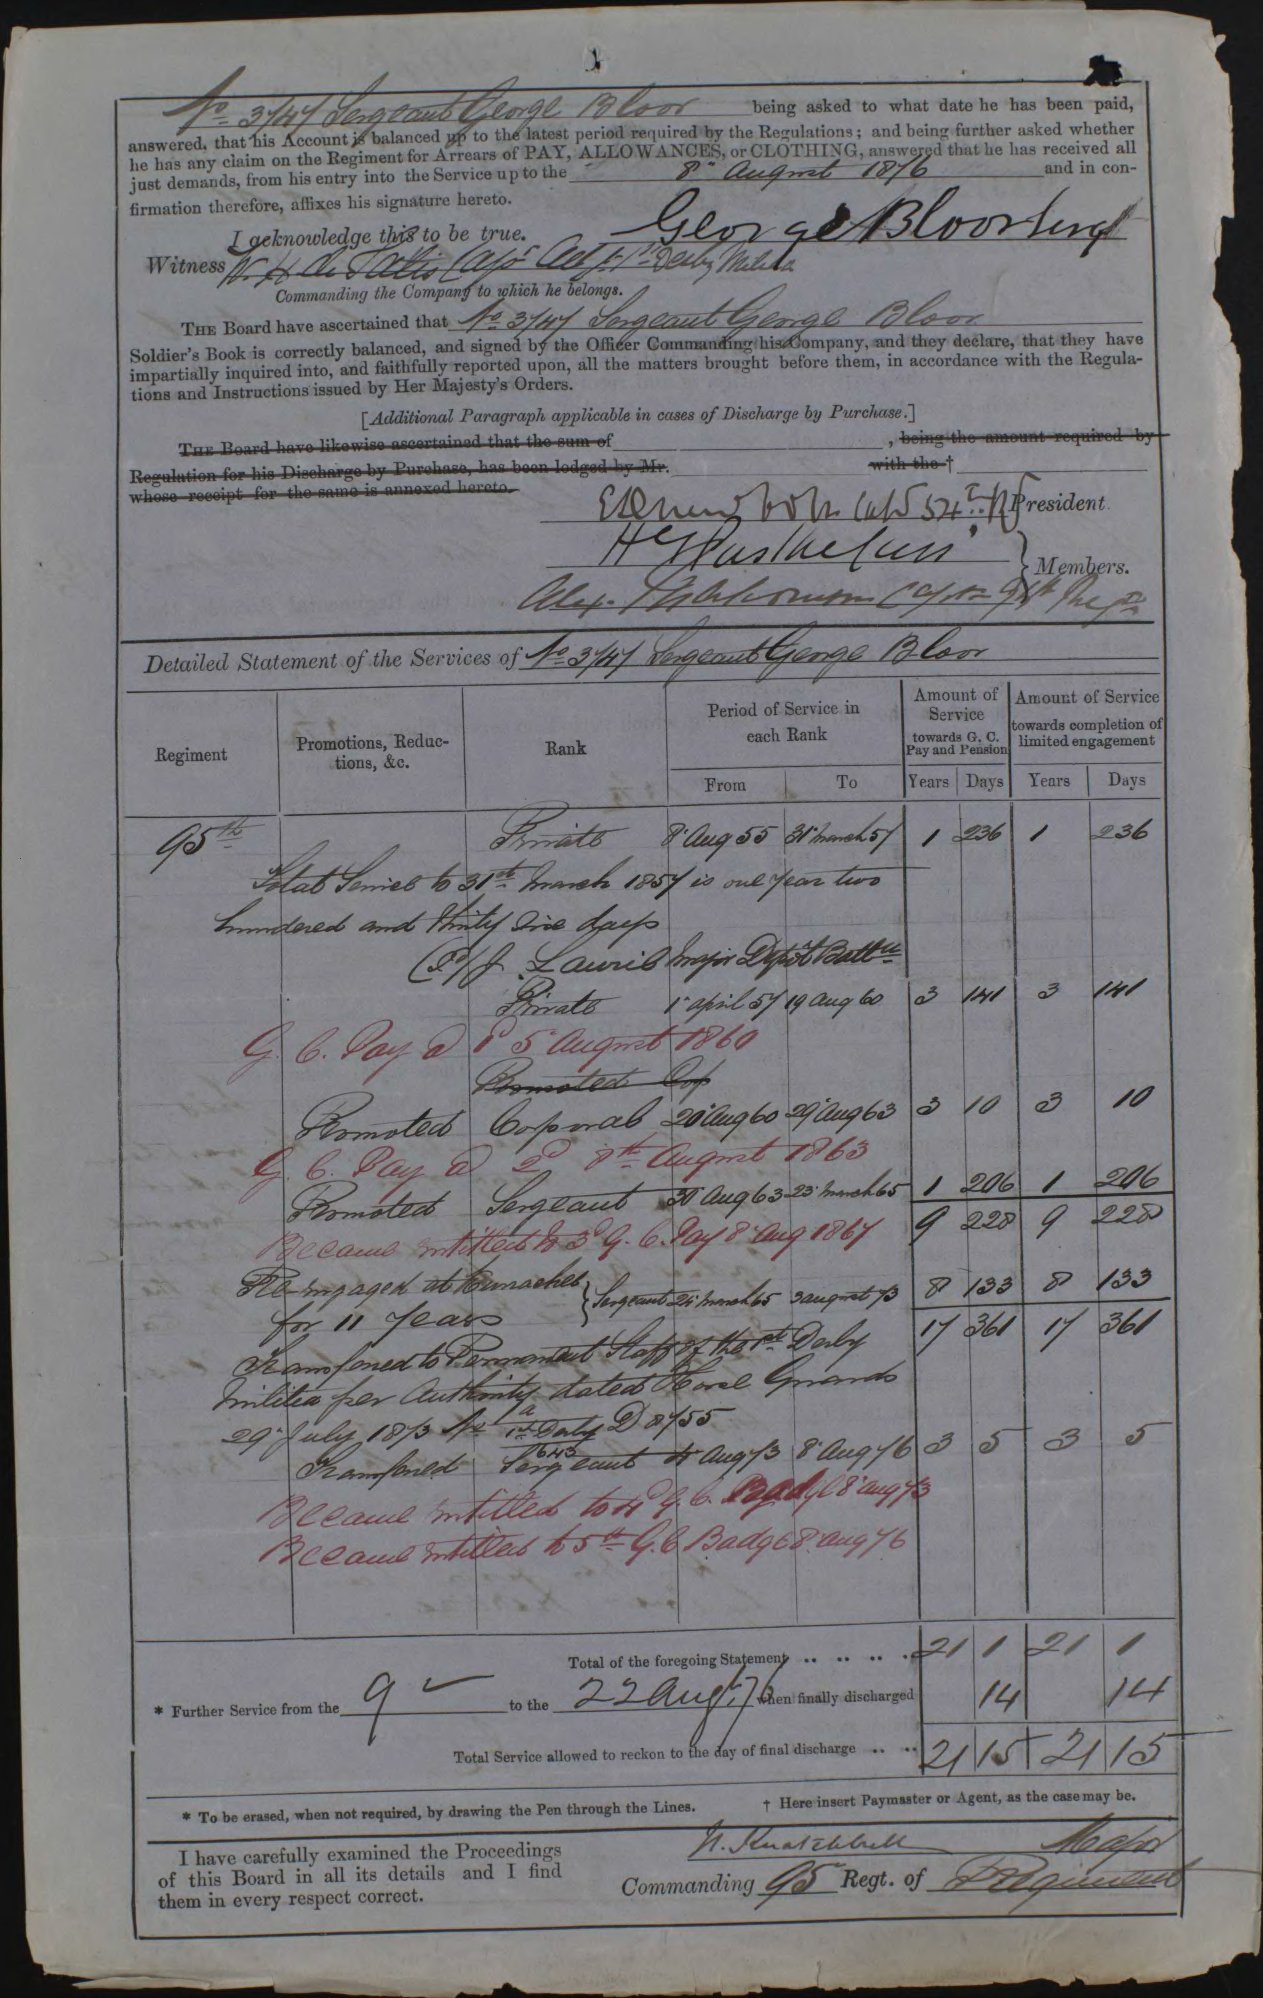 No 3747 Sergeant George Bloor being asked to what date he has been paid,
answered, that his Account is balanced up to the latest period required by the Regulations; and being further asked whether
he has any claim on the Regiment for Arrears of PAY, ALLOWANCES, or CLOTHING, answered that he has received all
just demands, from his entry into the Service up to the 8" August 1876 and in con-
firmation therefore, affixes his signature hereto.
George Bloor Sergt
I acknowledge this to be true.
Witness Capt Adjt 1st Derby Militia
Commanding the Company to which he belongs.
THE Board have ascertained that No 3747 Sergeant George Bloor
Soldier's Book is correctly balanced, and signed by the Officer Commanding his Company, and they declare, that they have
impartially inquired into, and faithfully reported upon, all the matters brought before them, in accordance with the Regula-
tions and Instructions issued by Her Majesty's Orders.
[Additional Paragraph applicable in cases of Discharge by Purchase.]
THE Board have likewise ascertained that the sum of , being the amount required by
Regulation for his Discharge by Purchase, has been lodged by Mr. with the †
whose receipt for the same is annexed hereto.
Capt 54th President
Members.
Alex. Capt 9 th Regt
Detailed Statement of the Services of No 3747 Sergeant George Bloor
Regiment Promotions, Reduc-tions, &c. Rank Period of Service in each Rank Amount of Service towards G. C. Pay and Pension Amount of Service towards completion of limited engagement
From To Years Days Years Days
95th Private 8" Aug 55 31" March 57 1 236 1 236
Total Service to 31st March 1857 is one year two
hundered and thirty six days
J. Laurie Major Depôt Battn
Private 1" april 57 19 Aug 60 3 141 3 141
G. C. Pay @ 1d 5" August 1860
Promoted Cop
Promoted Corporal 20" Aug 60 29" Aug 63 3 10 3 10
G. C. Pay @ 2d 8th August 1863
Promoted Sergeant 30" Aug 63 23" March 65 1 206 1 206
9 228 9 228
Became intitled to 3d G. C. Pay 8" Aug 1867
Re-ingaged at for 11 Years Sergeant 24" March 65 3 august 73 8 133 8 133
17 361 17 361
Transfered to Permanent Staff of the 1st Derby
Militia per Authority dated Horse Guards
29" July 1873 No a 1st Derby 643 D 8755
Transfered Sergeant 4" Aug 73 8" Aug 76 3 5 3 5
Became intitled to 4d G. C. Badge 8" Aug 73
Became intitled to 5th G. C Badge 8" aug 76
Total of the foregoing Statement .. .. .. .. 21 1 21 1
* Further Service from the 9" to the 22 Augt 76 when finally discharged 14 14
Total Service allowed to reckon to the day of final discharge .. .. 21 15 21 15
* To be erased, when not required, by drawing the Pen through the Lines. † Here insert Paymaster or Agent, as the case may be.
I have carefully examined the Proceedings
of this Board in all its details and I find
them in every respect correct.
N. Knatchbull Major
Commanding 95 Regt. of Regiment